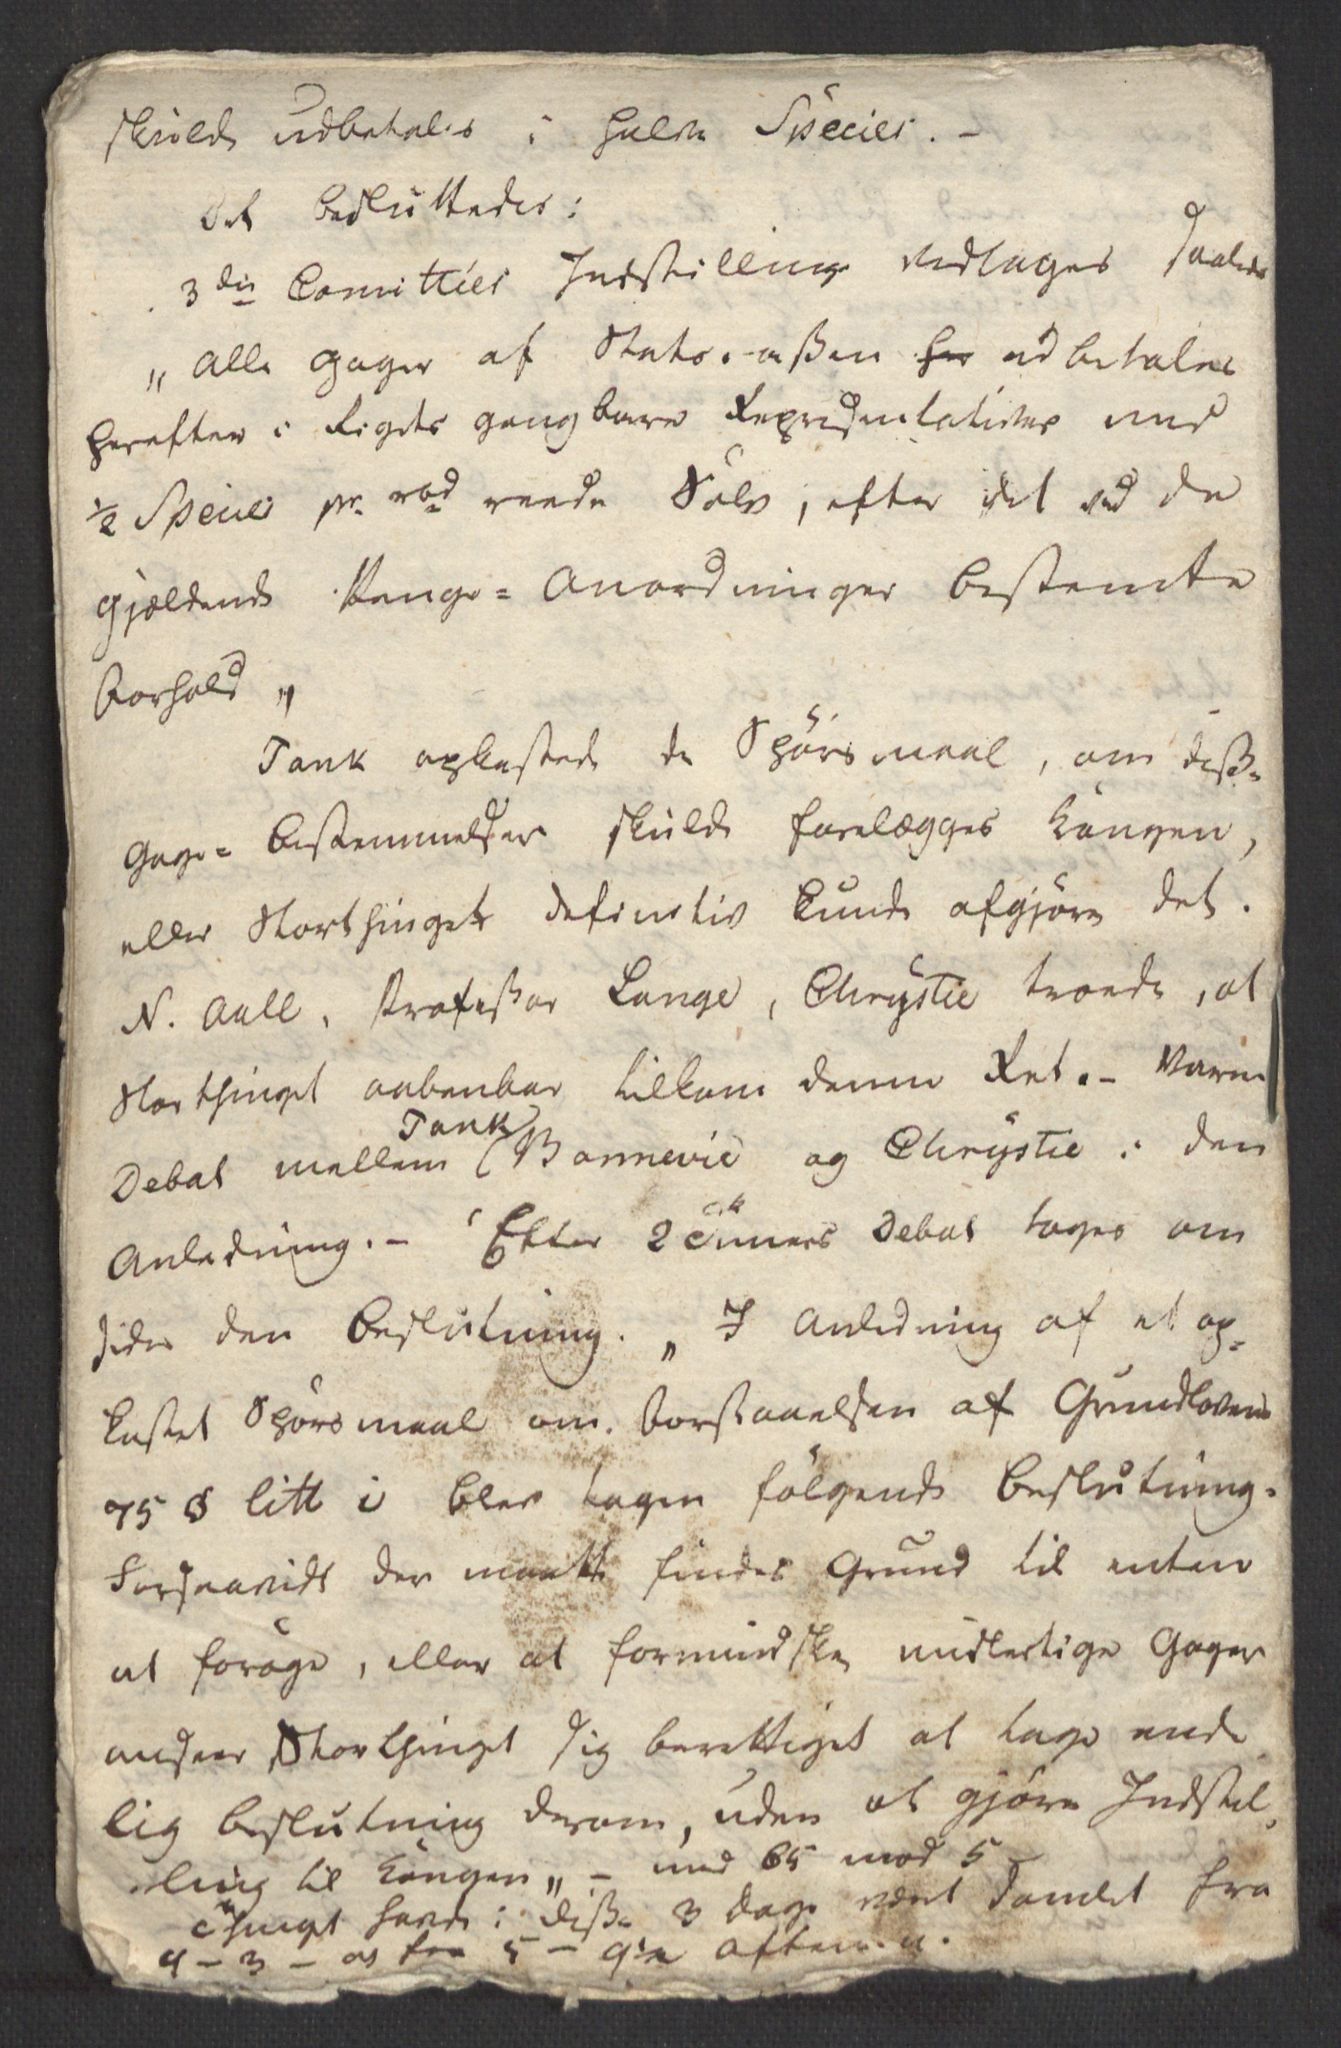 skulde udbetales i halve Species. –
Det besluttedes:
3die Comittées Indstilling vedtages saaledes
„Alle Gager af Statscassen her udbetales
herefter i Rigets gangbare Repræsentativer med
½ Species pr. rbd reede Sölv, efter det ved de
gjældende Penge= Anordninger bestemte
Forhold„
Tank opkastede de Spörsmaal, om disse
Gage= Bestemmelser skulde forelægges Kongen,
eller Storthinget definitiv kunde afgjöre det.
N. Aall, Professor Lange, Chrystie troede, at
Storthinget aabenbar tilkom denne Ret. – Varm
Tank
Debat mellem Bonnevie og Chrystie i den
Anledning. – Efter 2 Timers Debat toges om
sider den Beslutning. „I Anledning af et op=
kastet Spörsmaal om Forstaaelsen af Grundlovens
75 § litt i blev tagen fölgende Beslutning.
Forsaavidt der maatte findes Grund til enten
at foröge, eller at formindske midlertige Gager
anseer Storthinget sig berettiget at tage ende
lig Beslutning derom, uden at gjöre Indstil=
ling til Kongen„ – med 65 mod 5
Thinget havde i disse 3 Dage været samlet fra
9 – 3 – og fra 5 – 9 Aften.